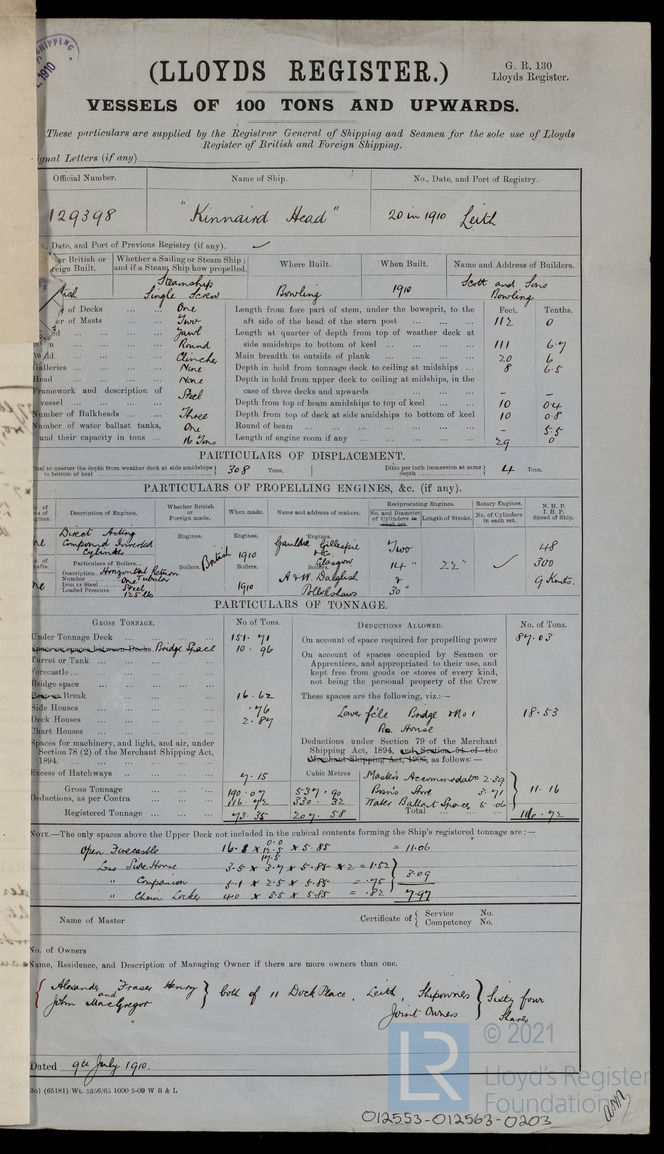 SHIPPING
1910
(LLOYDS REGISTER.)
G. R. 130
Lloyds Register.
VESSELS OF 100 TONS AND UPWARDS.
These particulars are supplied by the Registrar General of Shipping and Seamen for the sole use of Lloyds
Register of British and Foreign Shipping.
Letters (if any)
Official Number. Name of Ship. No., Date, and Port of Registry.
129398 "Kinnaird Head" 20 in 1910 Leith
Date, and Port of Previous Registry (if any). ✓
British or Foreign Built. Whether a Sailing or Steam Ship; and if a Steam Ship how propelled. Where Built. When Built. Name and Address of Builders.
Steamship Single Screw Bowling 1910 Scott and Sons Bowling
of Decks ... One
of Masts ... Two
Round
Clincher
Galleries ... None
Head ... None
Framework and description of vessel ... Steel
Number of Bulkheads ... Three
Number of water ballast tanks, and their capacity in tons ... One 16 Tons
Feet. Tenths.
Length from fore part of stem, under the bowsprit, to the aft side of the head of the stern post ... 112 0
Length at quarter of depth from top of weather deck at side amidships to bottom of keel ... 111 6.7
Main breadth to outside of plank ... 20 6
Depth in hold from tonnage deck to ceiling at midships ... 8 6.5
Depth in hold from upper deck to ceiling at midships, in the case of three decks and upwards ... - -
Depth from top of beam amidships to top of keel ... 10 0.4
Depth from top of deck at side amidships to bottom of keel 10 0.8
Round of beam ... - 5.5
Length of engine room if any ... 29 0
PARTICULARS OF DISPLACEMENT.
Total to quarter the depth from weather deck at side amidships to bottom of keel 308 Tons. Ditto per inch immersion at same depth 4 Tons.
PARTICULARS OF PROPELLING ENGINES, &c. (if any).
Description of Engines. Whether British or Foreign made. When made. Name and address of makers. Reciprocating Engines. Rotary Engines. N. H. P. I. H. P. Speed of Ship.
No. and Diameter of Cylinders in each set. Length of Stroke. No. of Cylinders in each set.
Engines. Engines. Engines.
Direct Acting Compound Inverted Cylinder
British 1910 Glasgow Two 22" ✓ 48
Particulars of Boilers. Boilers. Boilers. Boilers. 14" 300
Description Horizontal Return Tubular
Number One
Iron or Steel Steel
Loaded Pressure 125 lbs
1910 A & W. Dalglish Pollokshaws & 30" 9 Knots.
PARTICULARS OF TONNAGE.
GROSS TONNAGE. No of Tons. DEDUCTIONS ALLOWED. No. of Tons.
Under Tonnage Deck ... 151.71
Bridge Space 10.96
Turret or Tank ...
Forecastle ...
Bridge space ...
Break ... 16.62
Side Houses ... .76
Deck Houses ... 2.87
Chart Houses ...
Spaces for machinery, and light, and air, under Section 78 (2) of the Merchant Shipping Act, 1894. ...
Excess of Hatchways ... 7.15
Cubic Metres
Gross Tonnage ... 190.07 537.90
Deductions, as per Contra ... 116.72 330.32
Registered Tonnage ... 73.35 207.58
On account of space required for propelling power ... 87.03
On account of spaces occupied by Seamen or Apprentices, and appropriated to their use, and kept free from goods or stores of every kind, not being the personal property of the Crew
These spaces are the following, viz.:—
Lower f'cle Bridge No 1 House 18.53
Deductions under Section 79 of the Merchant Shipping Act, 1894, and Section 54 of the Merchant Shipping Act, 1906, as follows:—
Master's Accommodation 2.39
Bosn's Store 3.71
Water Ballast Spaces 5.06
11.16
Total ... 116.72
NOTE.—The only spaces above the Upper Deck not included in the cubical contents forming the Ship's registered tonnage are:—
Open Forecastle 16.8 x 0.0 12.5 17.5 x 5.85 = 11.06
Less Side House 3.5 x 3.7 x 5.85 x 2 = 1.52
" Companion 5.1 x 2.5 x 5.85 = .75
" Chain Locker 4.0 x 3.5 x 5.85 = .82
3.09
7.97
Name of Master Certificate of { Service No. Competency No.
No. of Owners
Name, Residence, and Description of Managing Owner if there are more owners than one.
{ Alexander Fraser Henry and John MacGregor } both of 11 Dock Place, Leith, Shipowners Joint Owners } Sixty four Shares
Dated 9th July 1910.
(65181) Wt. 5356/65 1000 5-09 W B & L
LR
© 2021
Lloyd's Register
Foundation
012553-012563-0203